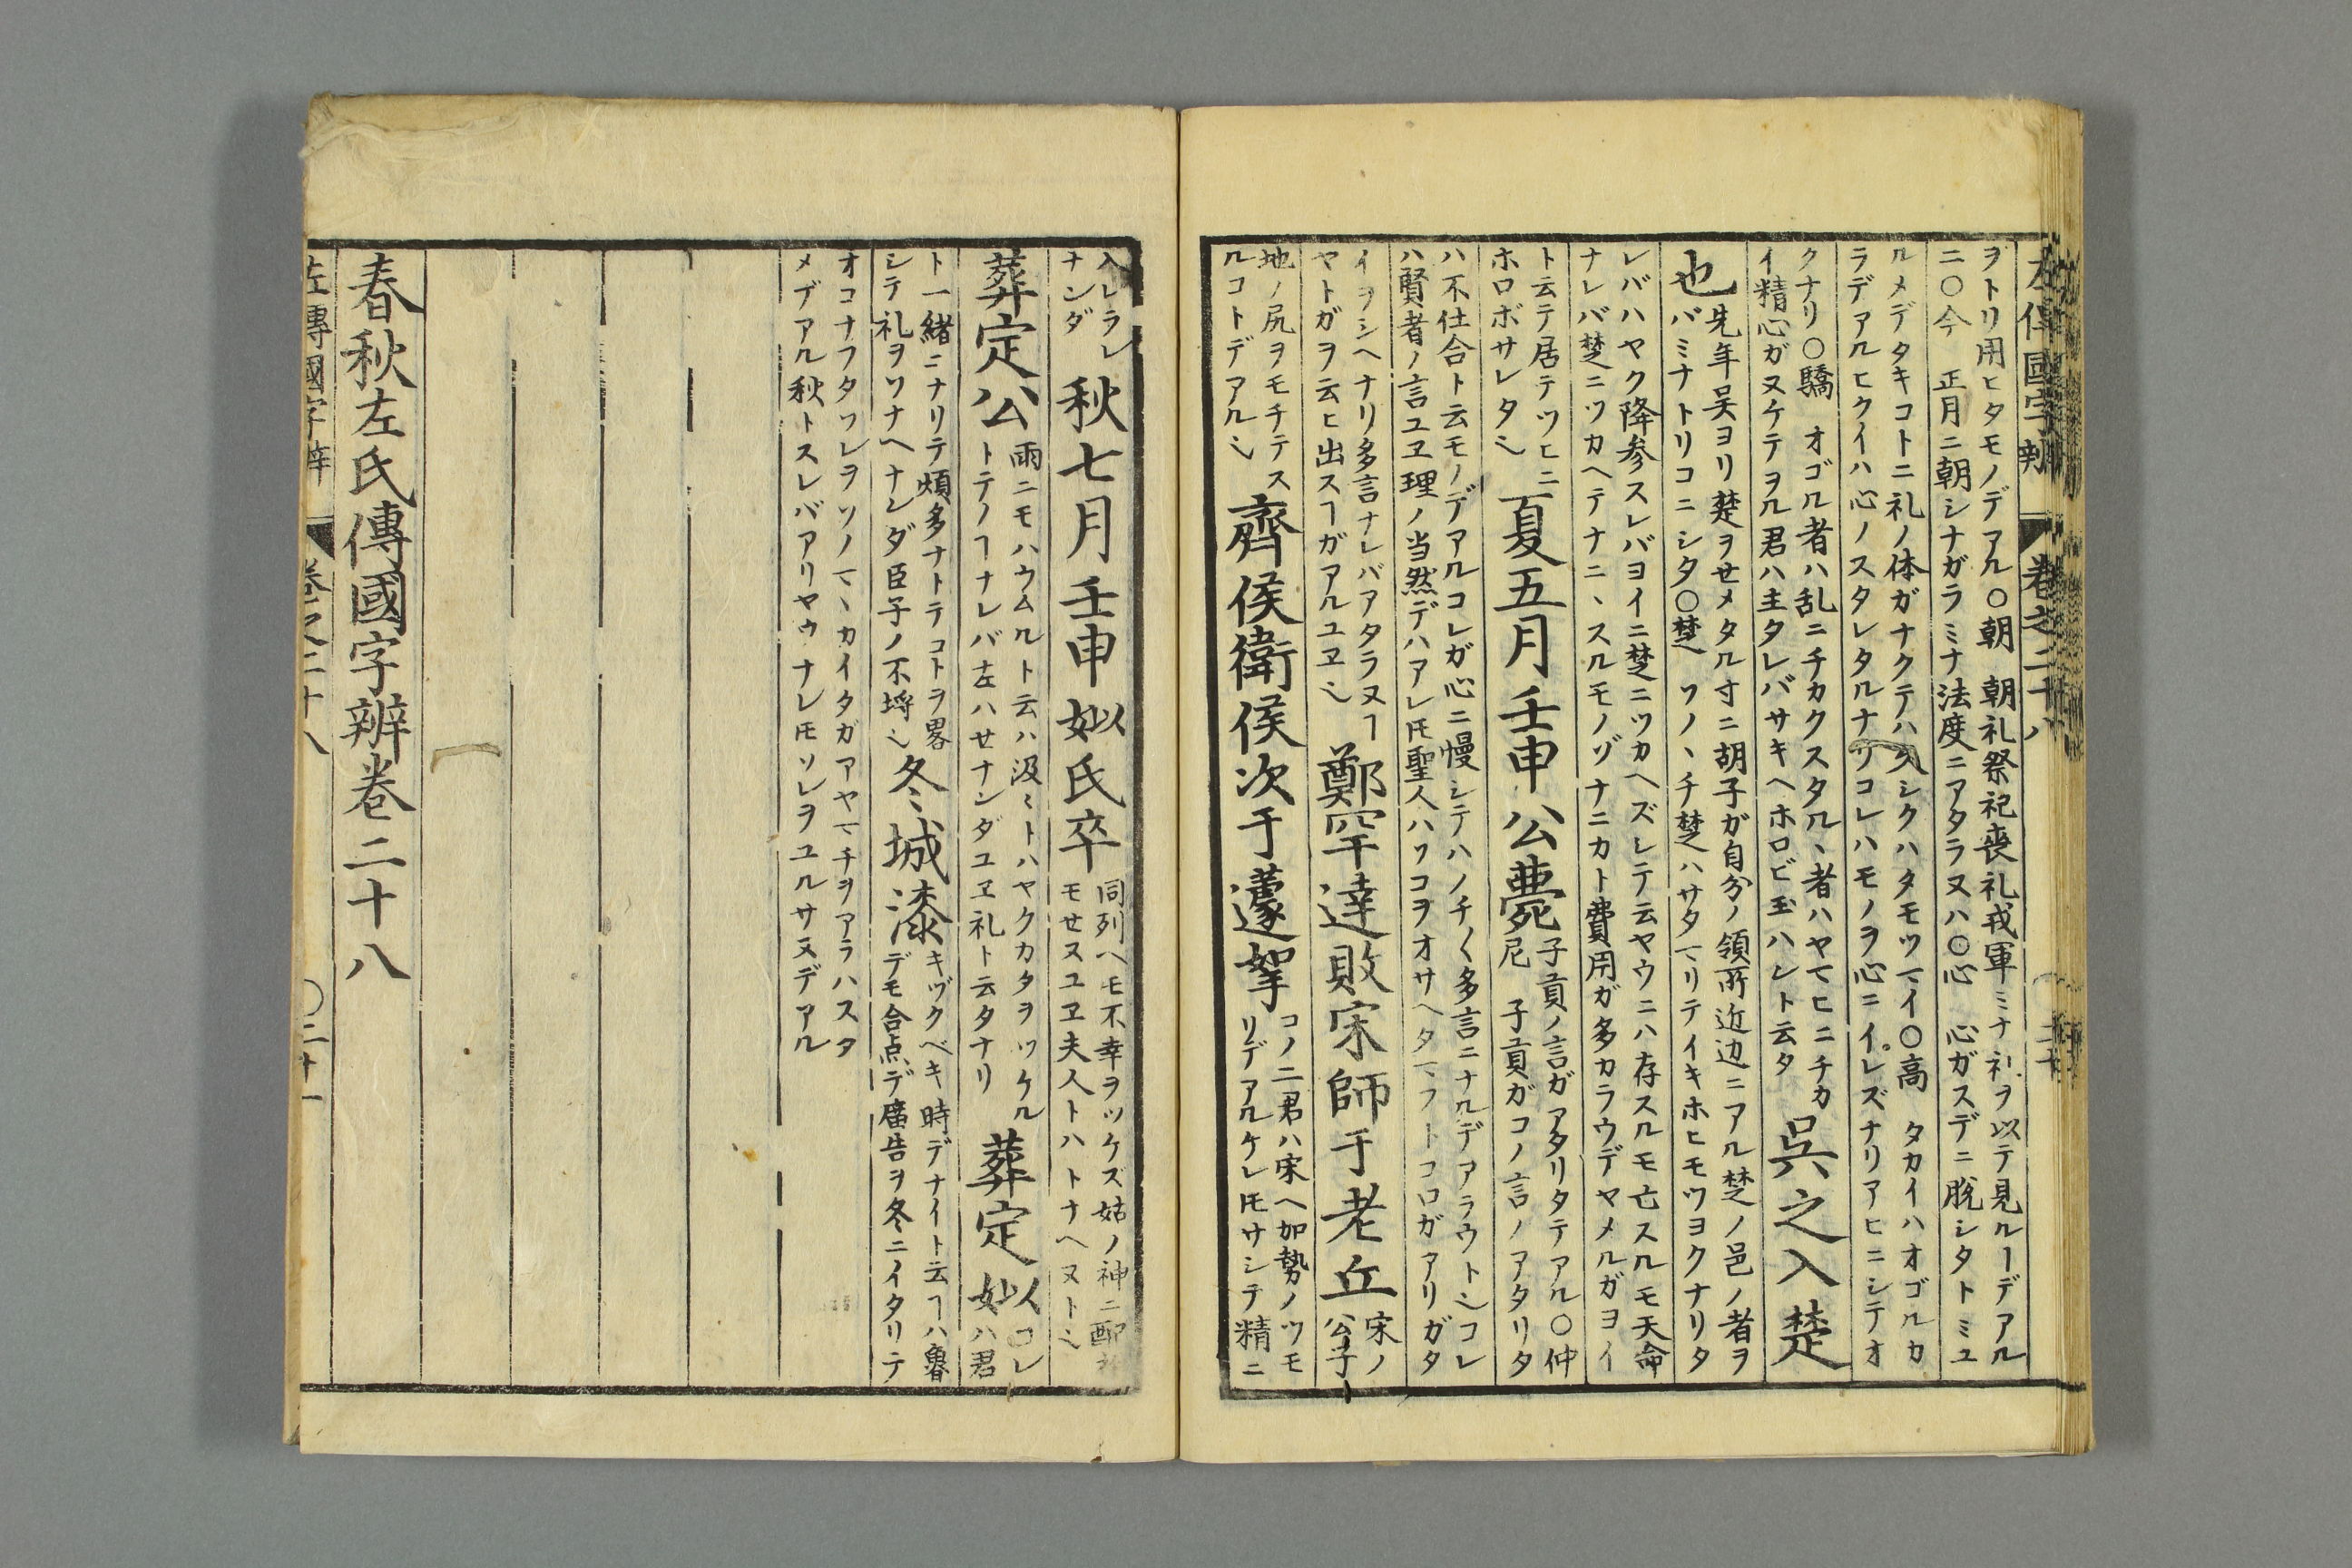 左傳國字辨 卷之二十八
ヲトリ用ヒタモノデアル〇朝 朝礼祭祀喪礼戎軍ミナ礼ヲ以テ見ルヿデアル
二〇今 正月ニ朝シナガラミナ法度ニアタラヌハ〇心 心ガスデニ脱シタトミユ
ルメデタキコトニ礼ノ体ガナクテハ久シクハタモツマイ〇高 タカイハオゴルカ
ラデアルヒクイハ心ノスタレタルナリコレハモノヲ心ニイレズナリアヒニシテオ
クナリ〇驕 オゴル者ハ乱ニチカクスタルヽ者ハヤマヒニチカ
イ精心ガヌケテヲル君ハ主タレバサキヘホロビ玉ハレト云タ
呉之入楚
也
先年呉ヨリ楚ヲせメタル寸ニ胡子ガ自分ノ領所近辺ニアル楚ノ邑ノ者ヲ
バミナトリコニシタ〇楚 ソノヽチ楚ハサタマリテイキホヒモツヨクナリタ
レバハヤク降参スレバヨイニ楚ニツカヘズレテ云ヤウニハ存スルモ亡スルモ天命
ナレバ楚ニツカヘテナニヽスルモノゾナニカト費用ガ多カラウデヤメルガヨイ
ト云テ居テツヒニ
ホロボサレタ〻
夏五月壬申公薨
子貢ノ言ガアタリタテアル〇仲
尼 子貢ガコノ言ノアタリタ
ハ不仕合ト云モノデアルコレガ心ニ慢シテハノチ〱多言ニナルデアラウト〻コレ
ハ賢者ノ言ユヱ理ノ当然デハアレ𪜈聖人ハソコヲオサヘタマフトコロガアリガタ
イヲシヘナリ多言ナレバアタラヌヿ
ヤトガヲ云ヒ出スヿガアルユヱ〻
鄭罕達敗宋師于老丘
宋ノ
公子
地ノ尻ヲモチテス
ルコトデアル〻
齊侯衛侯次于蘧挐
コノ二君ハ宋ヘ加勢ノツモ
リデアルケレ𪜈サシテ精ニ
入レラレ
ナンダ
秋七月壬申姒氏卒
同列ヘモ不幸ヲツケズ姑ノ神ニ配
モせヌユヱ夫人トハトナヘヌト〻
葬定公
雨ニモハウムルト云ハ汲〻トハヤクカタヲツケル
トテノヿナレバ左ハせナンダユヱ礼ト云タナリ
葬定姒
コレ
ハ君
ト一緒ニナリテ煩多ナトテコトヲ畧
シテ礼ヲソナヘナンダ臣子ノ不埒〻
冬城漆
キヅクベキ時デナイト云ヿハ魯
デモ合点デ廣告ヲ冬ニイタリテ
オコナフタソレヲソノマヽカイタガアヤマチヲアラハスタ
メデアル秋トスレバアリヤウナレ𪜈ソレヲユルサヌデアル
春秋左氏傳國字辨卷二十八
左傳國字辨 卷之二十八 〇二十一